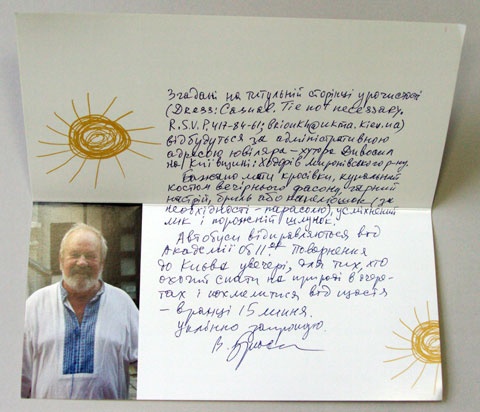 Згадані на титульній сторінці урочистості
(Dress: Casual. Tie not necessary.
R.S.V.P. 417-84-61; vkioukh@ukma.kiev.ua)
відбудуться за адміністративною
адресою ювіляра – хутора
на Київщині: Ходорів Миронівского р-ну.
Бажано мати кросівки, купальний
костюм вечірнього фасону, гарний
настрій, бриль або капелюшок (за
необхідності – парасолю), усміхнений
лик і порожній шлунок.
Автобуси відправляються від
Академії об 11⁰⁰. Повернення
до Києва увечері, для тих, хто
охочий спати на природі в очере-
тах і похмелитися від щастя
– вранці 15 липня.
Уклінно запрошую.
В.